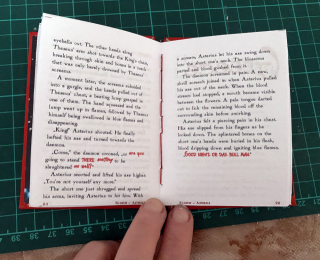 eyeballs out. The other hands slung
Theseus' arm shot towards the King's chest,
breaking through skin and bones in a crunch
that was only barely drowned by Theseus'
screams.
A moment later, the screams relented
into a gurgle, and the hands pulled out of
Theseus' chest, a beating lump grasped in
one of them. The hand squeezed and the
lump went up in flames, followed by Theseus
himself being swallowed in blue flames and
disappearing.
"King!" Asterius shouted. He finally
lifted his axe and turned towards the
daemon.
the daemon crooned, are you
going to stand THERE waiting to be
slaughtered AS WELL?"
Asterius snorted and lifted his axe higher.
"You're not yourself any more."
The short one just shrugged and spread
his arms, inviting Asterius to hit him. With
a scream, Asterius let his axe swing down
into the short one's neck. The blisters
parted and blood gushed from it.
The daemon screamed in pain. A raw,
shrill screech joined in when Asterius pulled
his axe out of the neck. When the blood
stream had stopped, a mouth became visible
between the flowers. A pale tongue darted
out to lick the remaining blood off the
surrounding skin before snorting.
Asterius felt a piercing pain in his chest.
His axe slipped from his fingers as he
looked down. The splintered bones on the
short one's hands were buried in his flesh,
blood dripping down and igniting blue flames.